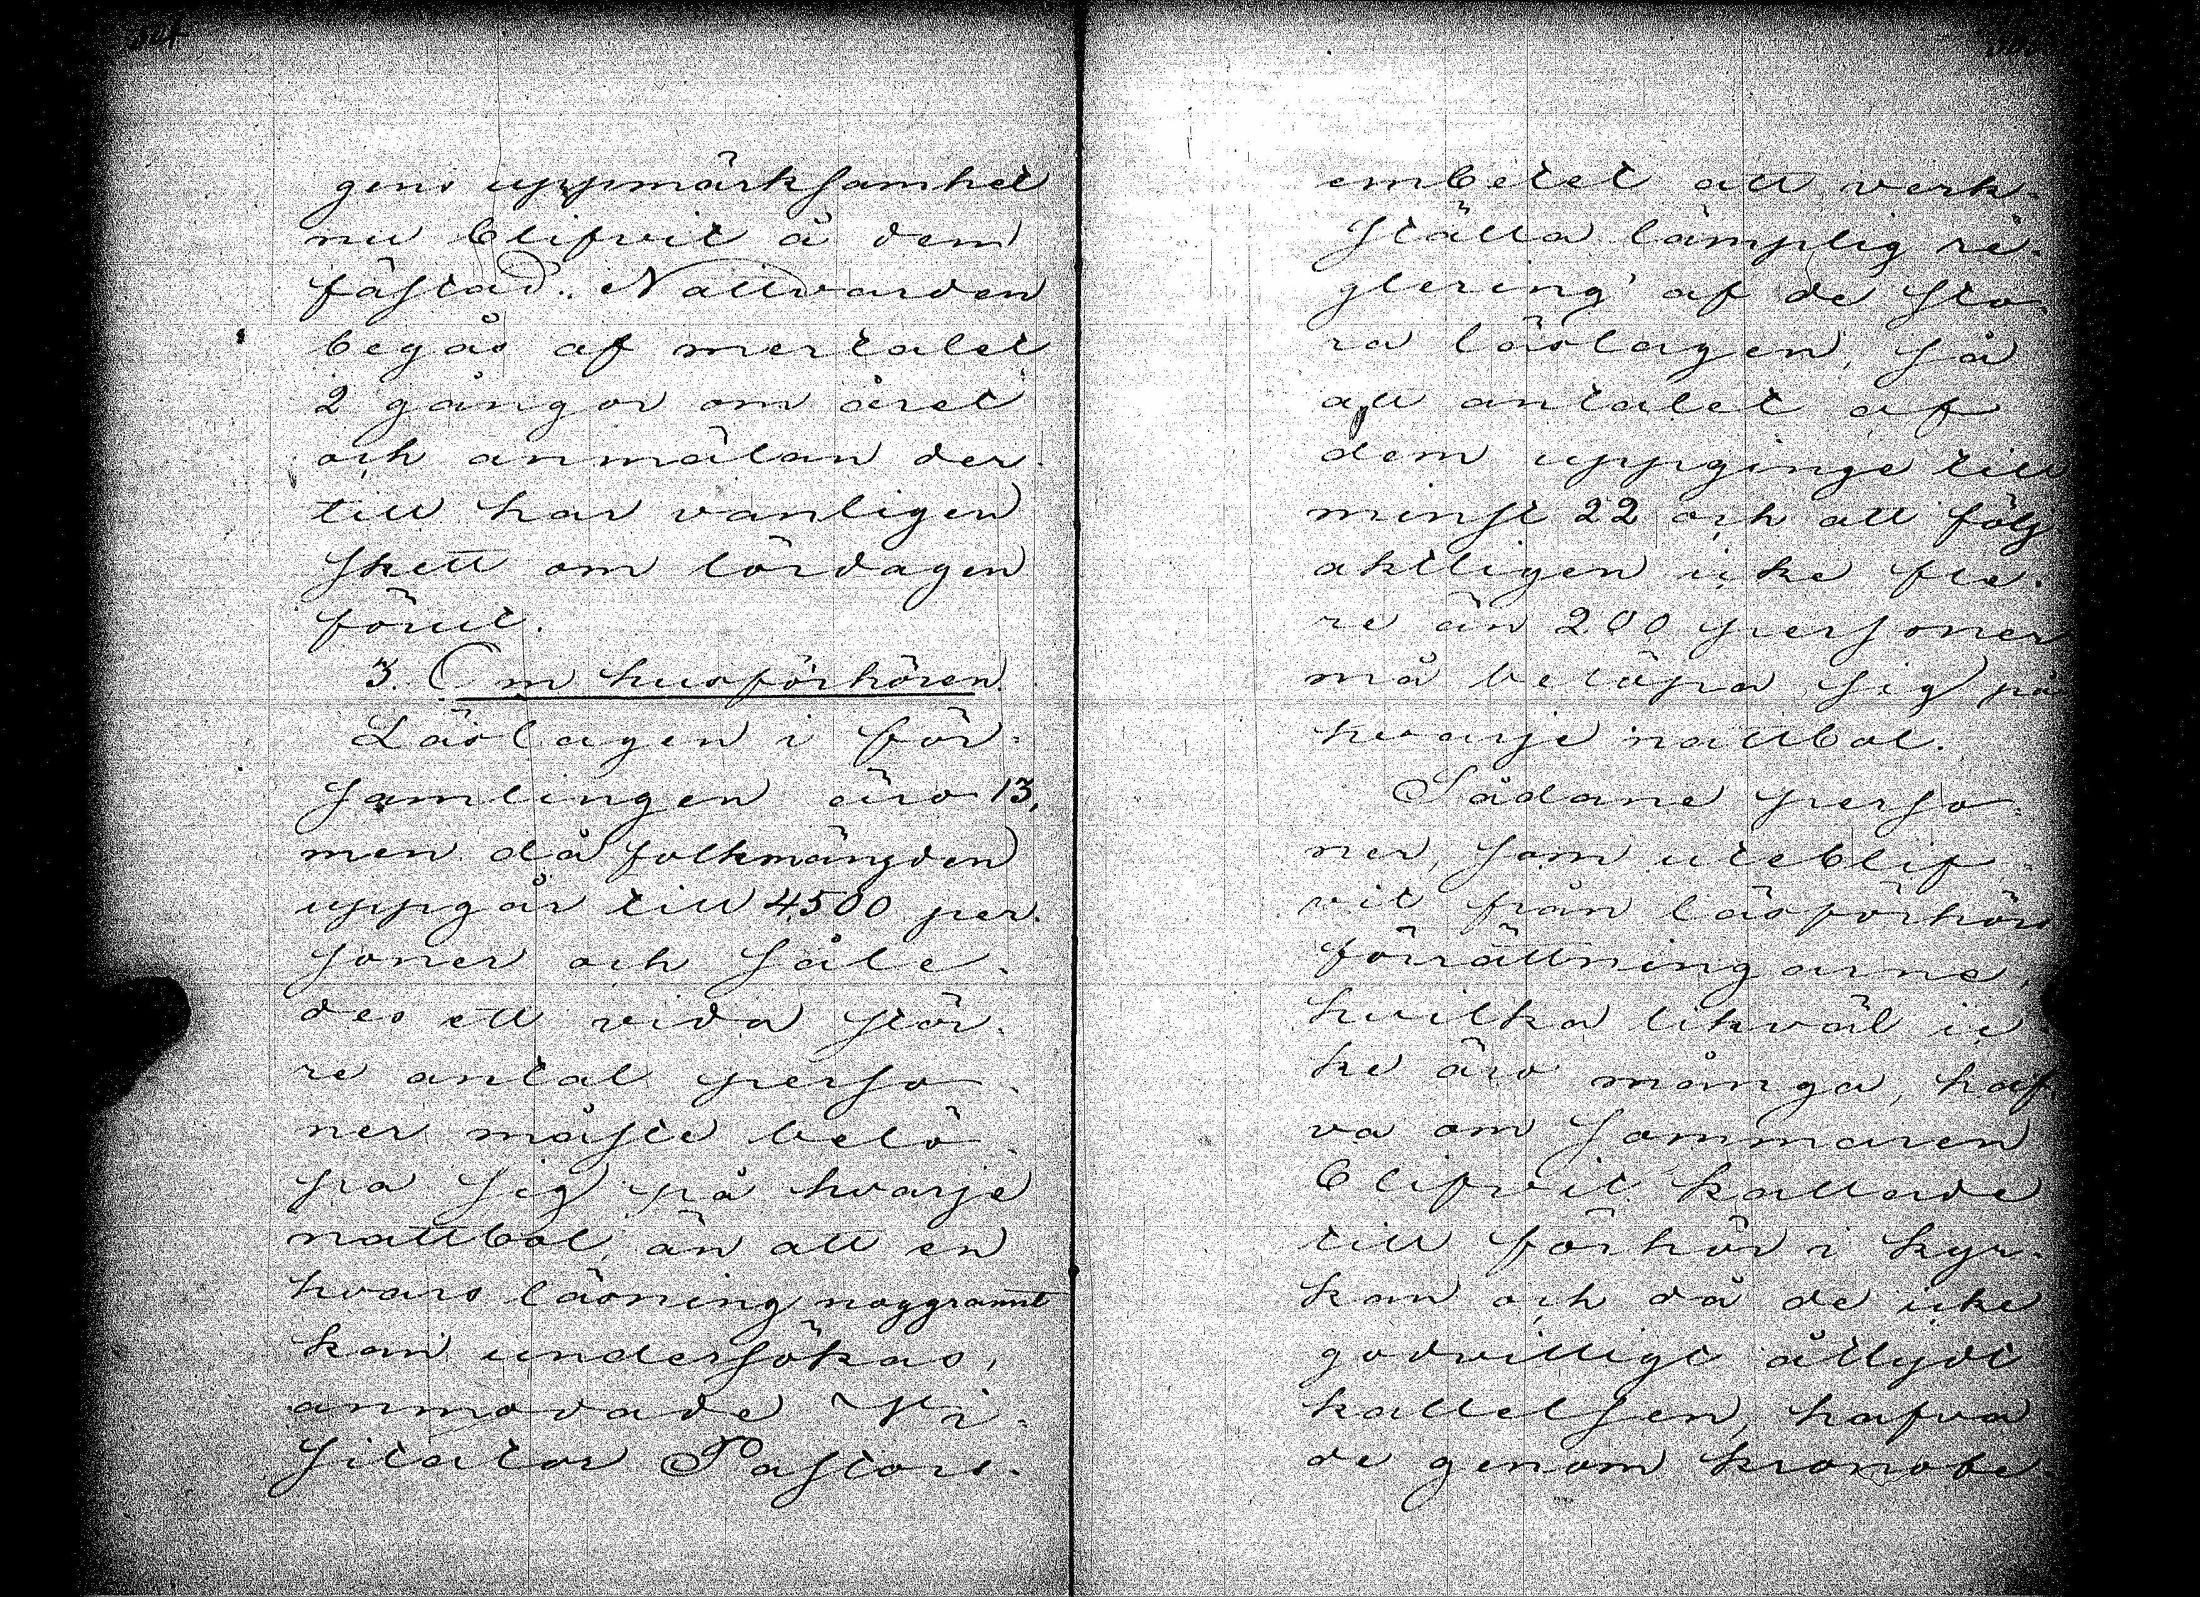 gens uppmärksamhet
nu blifvit å dem
fästad. Nattvarden
begås af mertalet
2 gångor om året
och anmälan der-
till har vanligen
skett om lördagen
förut.
3. Om husförhören.
Läslagen i för-
samlingen äro 13,
men då folkmängden
uppgår till 4,500 per-
soner och såle-
des ett vida stör-
re antal perso-
ner måste belö-
pa sig på hvarje
nattbol, än att en
hvars läsning noggrannt
kan undersökas,
anmodade Vi-
sitator Pastors-
embetet att verk-
ställa lämplig re-
glering af de sto-
ra läslagen, så
att antalet af
dem uppginge till
minst 22 och att följ
aktligen icke fle-
re än 200 personer
må belöpa sig på
hvarje nattbol.
Sådane perso-
ner, som uteblif-
vit från läsförhörs
förrättningarne,
hvilka likväl ic-
ke äro många, haf
va om sommaren
blifvit kallade
till förhör i kyr-
kan och då de icke
godvilligt åtlydt
kallelsen, hafva
de genom kronobe-